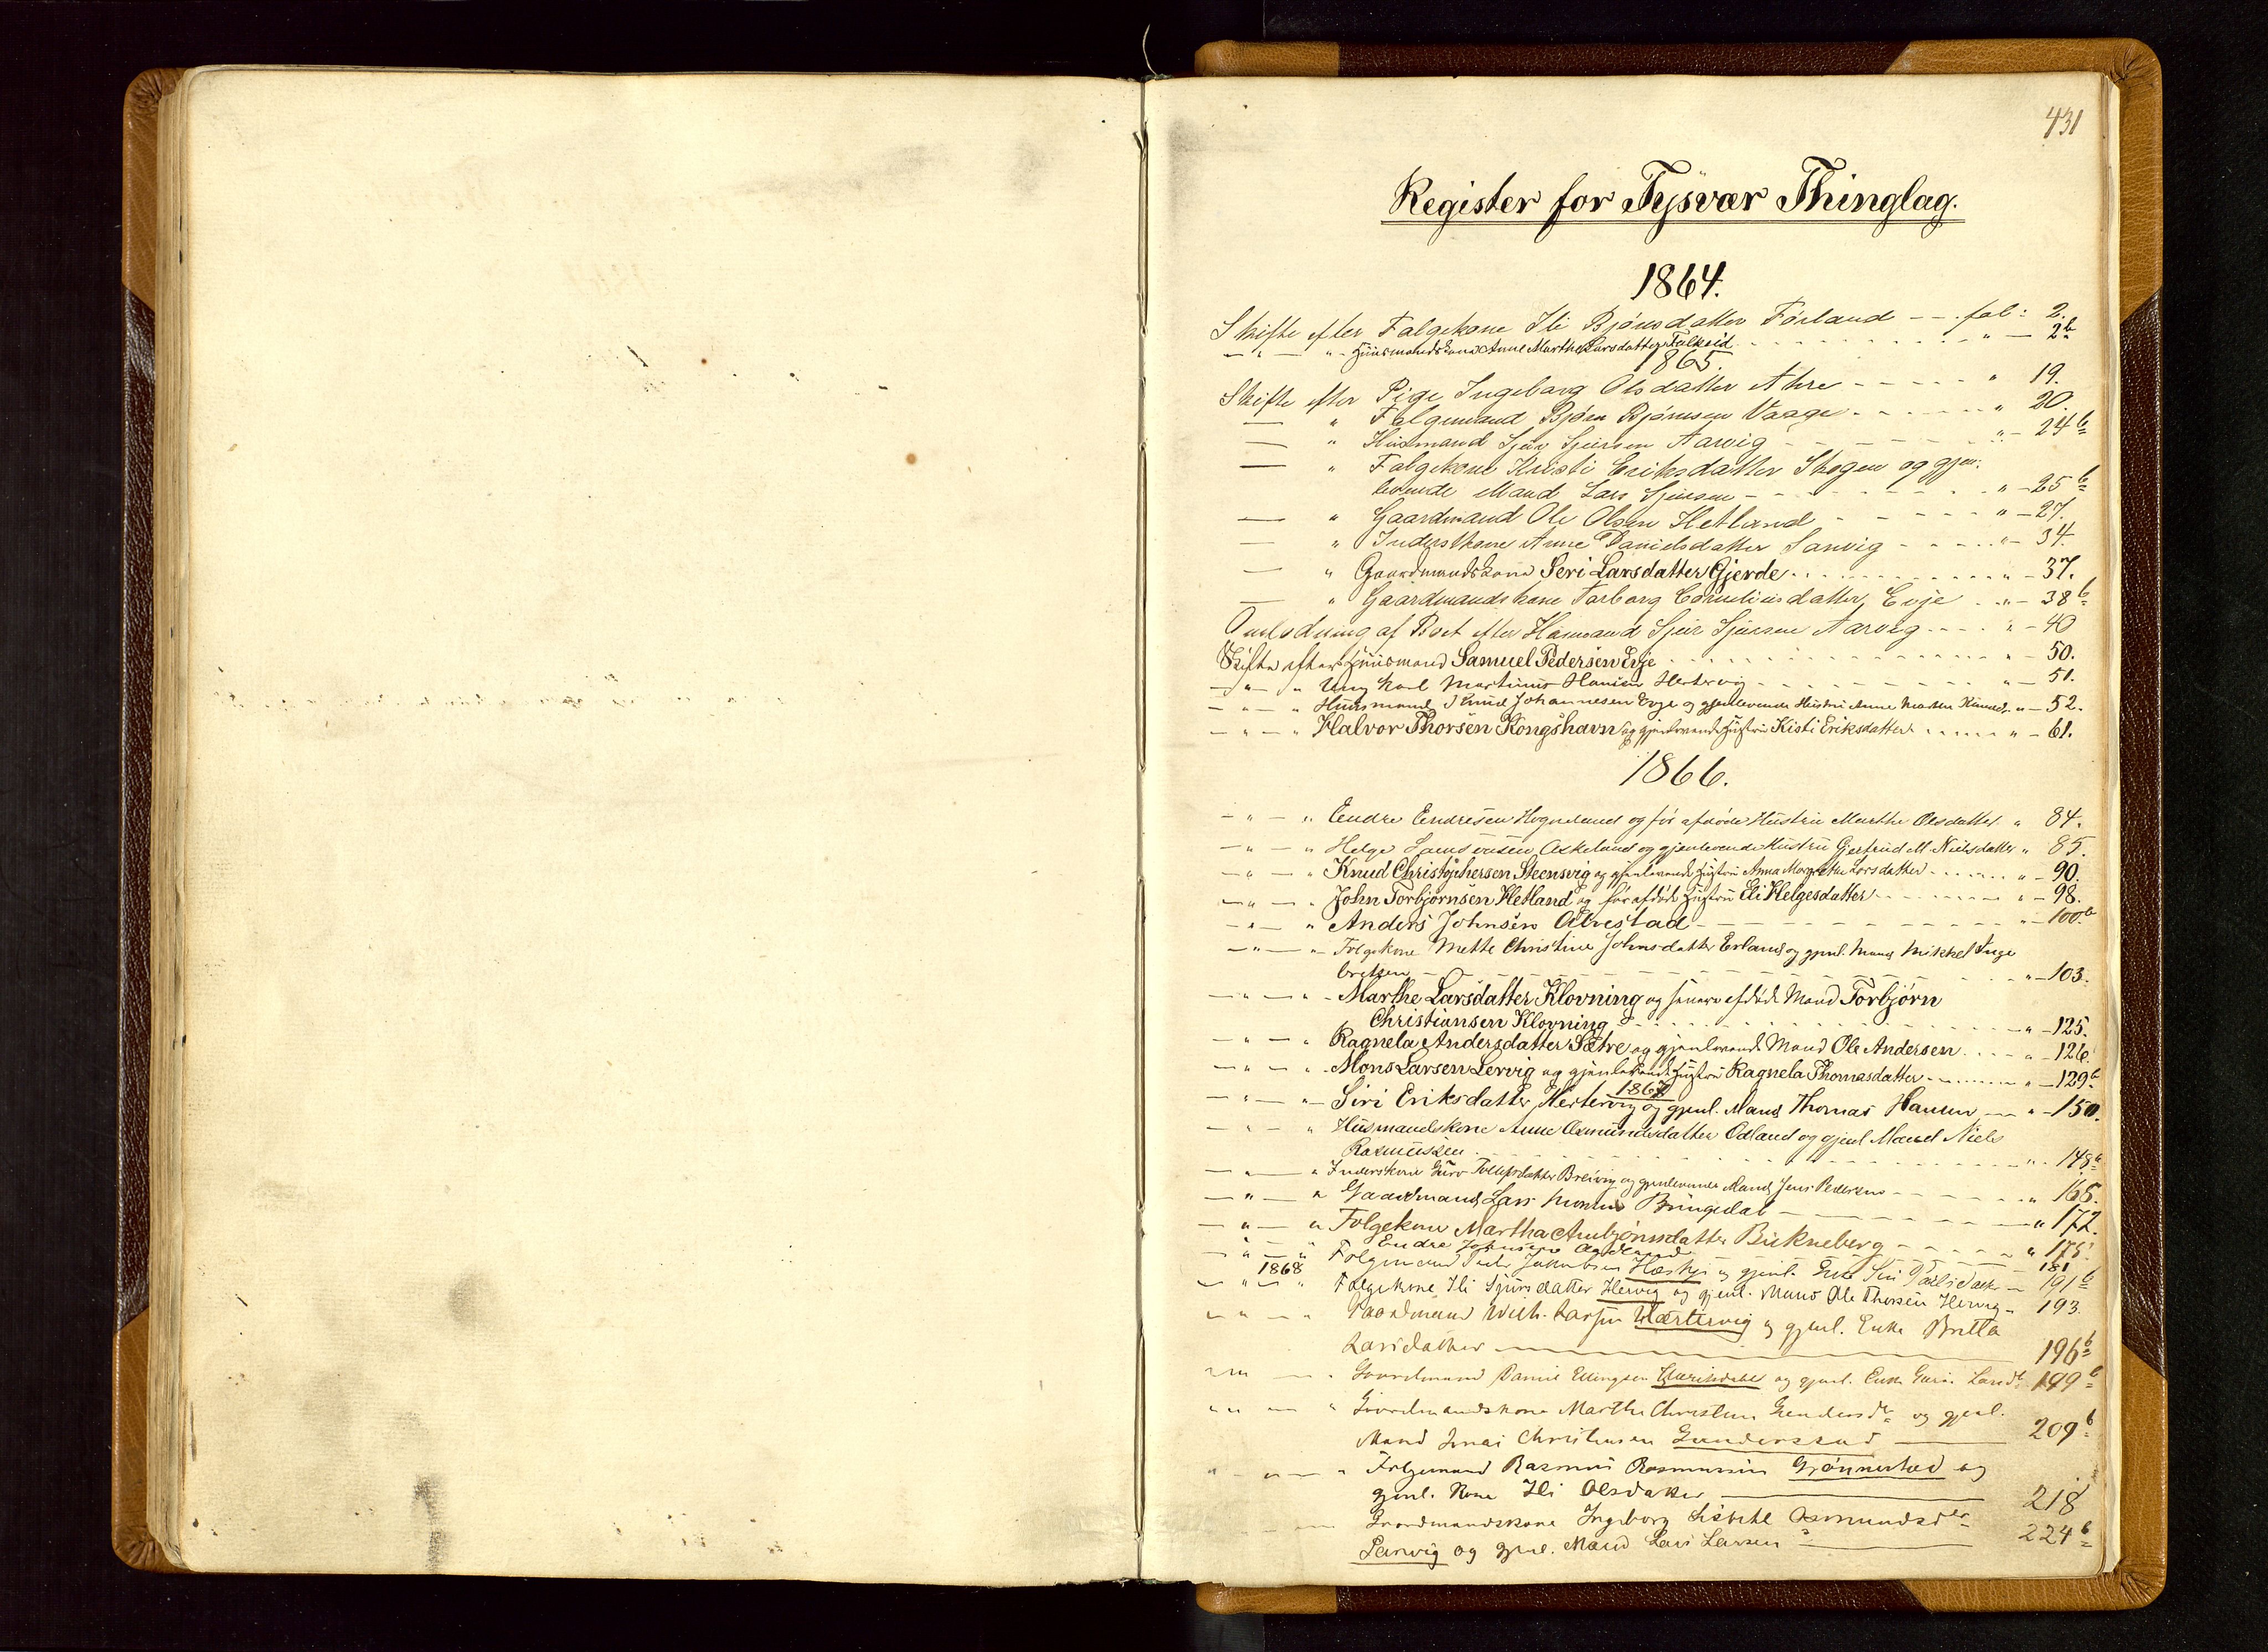 431
Register for Tysvær Thinglag.
1864.
Skifte efter Folgekone Ili Bjørnsdatter Førland - - . fol: 2.
— " — " - Huusmandskone Anne Marthe Larsdatter Falkeid . . . . . " — 2b
1865.
Skifte efter Pige Ingeborg Olsdatter Ahre - - - - - " 19.
— " Folgemand Bjørn Bjørnsen Vaage - - - - - " 20.
— " Husmand Sjur Sjursen Aarvig - - - - - " - 24b
— " Folgekone Kristi Eriksdatter Skogen og gjen-
levende Mand Lars Sjursen - - - - - " - 25b
— " Gaardmand Ole Olsen Hetland - - - - - " - 27.
— " Inderstkone Anne Danielsdatter Sanvig - - - - - " - 34.
— " Gaardmandskone Seri Larsdatter Gjerde . . . . . " - 37.
— " Gaardmandskone Torborg Corneliusdatter Evje . . " - 38b
af Boet efter Huusmand Sjur Sjursen Aarvig - - - - " - 40
Skifte efter Huusmand Samuel Pedersen Evje . . . . . " - 50.
— " — " Ung Karl Martinus Hansen Hertervig - - - - - " - 51.
— " — " Huusmand Knud Johannesen Evje og gjenlevende Hustru Anne Marthe Knuds. " - 52.
— " — " Halvor Thorsen Kongshavn og gjenlevende Hustru Kisti Eriksdatter . . . . . " - 61.
1866.
— " — " Endre Endresen Hogneland og før afdøde Hustru Marthe Olsdatter " 84.
— " — " Helge Askeland og gjenlevende Hustru Gjertrud M. Nielsdatter " 85.
— " — " Knud Christophersen Steensvig og gjenlevende Hustru Anna Margrethe Larsdatter . . . . " - 90.
— " — " John Torbjørnsen Hetland og før afdøde Hustru Eli Helgesdatter - - - - - " - 98.
— " — " Anders Johnsen Alvestad - - - - - " - 100b
— " — " Folgekone Mette Christine Johnsdatter Erland og gjenl. Mand Mikkel Inge
bretsen - - - - - " - 103.
— " — " - Marthe Larsdatter Klovning og senere afdøde Mand Torbjørn
Christiansen Klovning - - - - - " - 125.
— " — " Ragnela Andersdatter Sætre og gjenlevende Mand Ole Andersen . . . . " - 126.
— " — " - Mons Larsen Lervig og gjenlevende Hustru Ragnela Thomasdatter - - - - - " - 129b
1867
— " — " - Siri Eriksdatter Hertervig og gjenl. Mand Thomas Hansen — " - 150.
— " — " Husmandskone Anne Asmundsdatter Odland og gjenl Mand Niels
Rasmussen - - - - - " . 148b
— " — " Inderstkone Guro Tollefsdatter Breivig og gjenlevende Mand Jens Pedersen - - - - - " 165.
— " — " Gaardmand Lars Monsen Bringedal - - - - - " 172.
— " — " Folgekone Martha Anbjørnsdatter Bukneberg - - - - - " 175.
— " — " Endre Johnsen 181
1868 Folgemand Jakobsen Hæskje og gjenl. Enke Siri — 191b
— " — " Folgekone Ili Sjursdatter Hervig og gjenl. Mand Ole Thorsen Hervig " 193.
— " — " Gaardmand Larsen Hærtervig og gjenl. Enke Britta
Larsdatter — 196b
— " — " Gaardmand Daniel Ellingsen og gjenl. Enke Guri Larsdtr 199b
— " — " Gaardmandskone Marthe Christine og gjenl.
Mand Christensen Gunderstad — 209b
— " — " Folgemand Rasmus Rasmussen Grønnestad og
gjenl. Kone Ili Olsdatter — 218
— Gaardmandskone Ingeborg Lisbeth Asmundsdtr
Lervig og gjenl. Mand Lars Larsen — 224b